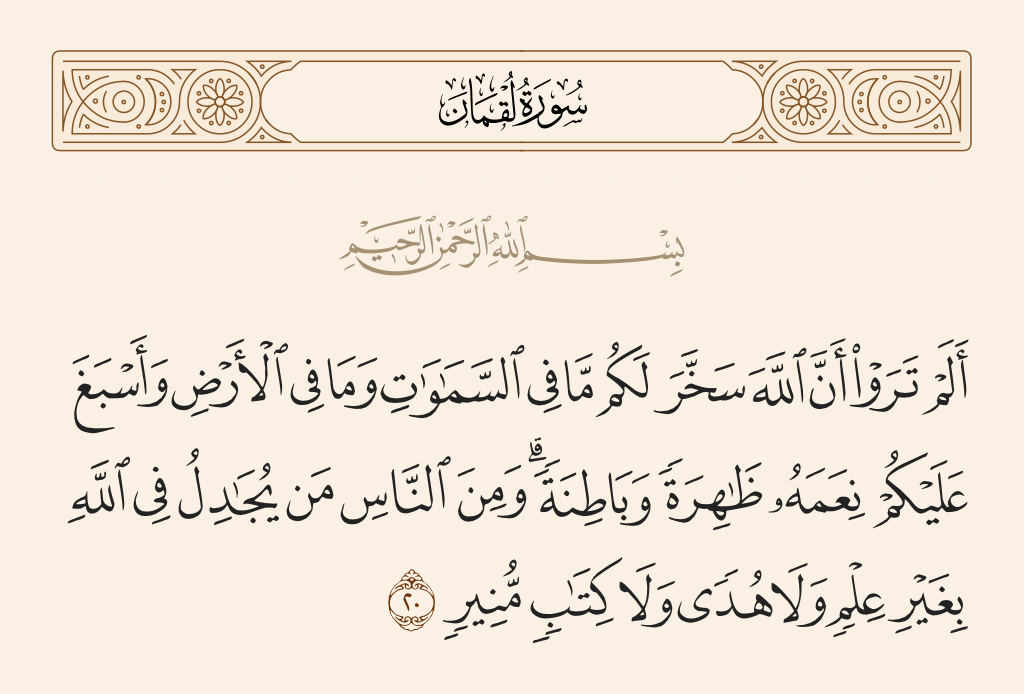 سُورَةُ لُقْمَانَ
بِسْمِ ٱللَّهِ ٱلرَّحْمَٰنِ ٱلرَّحِيمِ
أَلَمْ تَرَوْا۟ أَنَّ ٱللَّهَ سَخَّرَ لَكُم مَّا فِى ٱلسَّمَٰوَٰتِ وَمَا فِى ٱلْأَرْضِ وَأَسْبَغَ
عَلَيْكُمْ نِعَمَهُۥ ظَٰهِرَةً وَبَاطِنَةً ۗ وَمِنَ ٱلنَّاسِ مَن يُجَٰدِلُ فِى ٱللَّهِ
بِغَيْرِ عِلْمٍ وَلَا هُدًى وَلَا كِتَٰبٍ مُّنِيرٍ ٢٠